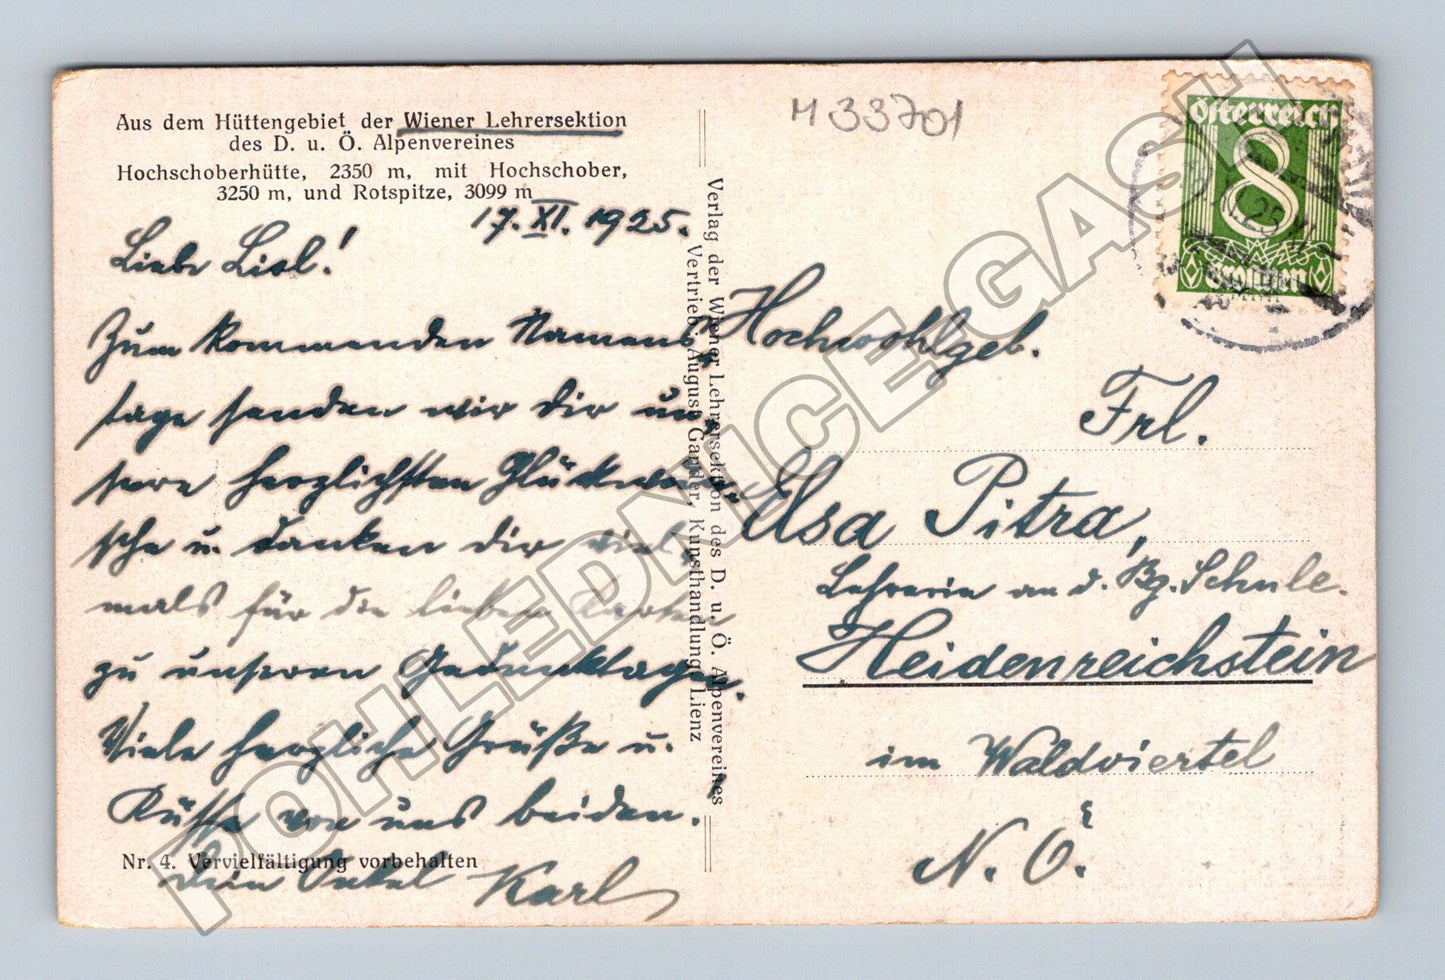 Aus dem Hüttengebiet der Wiener Lehrersektion
des D. u. Ö. Alpenvereines
Hochschoberhütte, 2350 m, mit Hochschober,
3250 m, und Rotspitze, 3099 m
17. XI. 1925.
Liebe Lisl!
Zum kommenden Namens-
tage senden wir dir un-
sere herzlichsten Glückwün-
sche u. danken dir viel-
mals für die lieben Karten
zu unseren Gedenktagen.
Viele herzliche Grüße u.
Küsse von uns beiden.
Dein Onkel Karl
Nr. 4. Vervielfältigung vorbehalten
Verlag der Wiener Lehrersektion des D. u. Ö. Alpenvereines
Vertrieb: August Gander, Kunsthandlung, Lienz
M 33701
Österreich
8
Groschen
25
Hochwohlgeb.
Frl.
Elsa Pitra,
Lehrerin an d. Bg. Schule.
Heidenreichstein
im Waldviertel
N. Ö.
POHLEDNICE-GASH